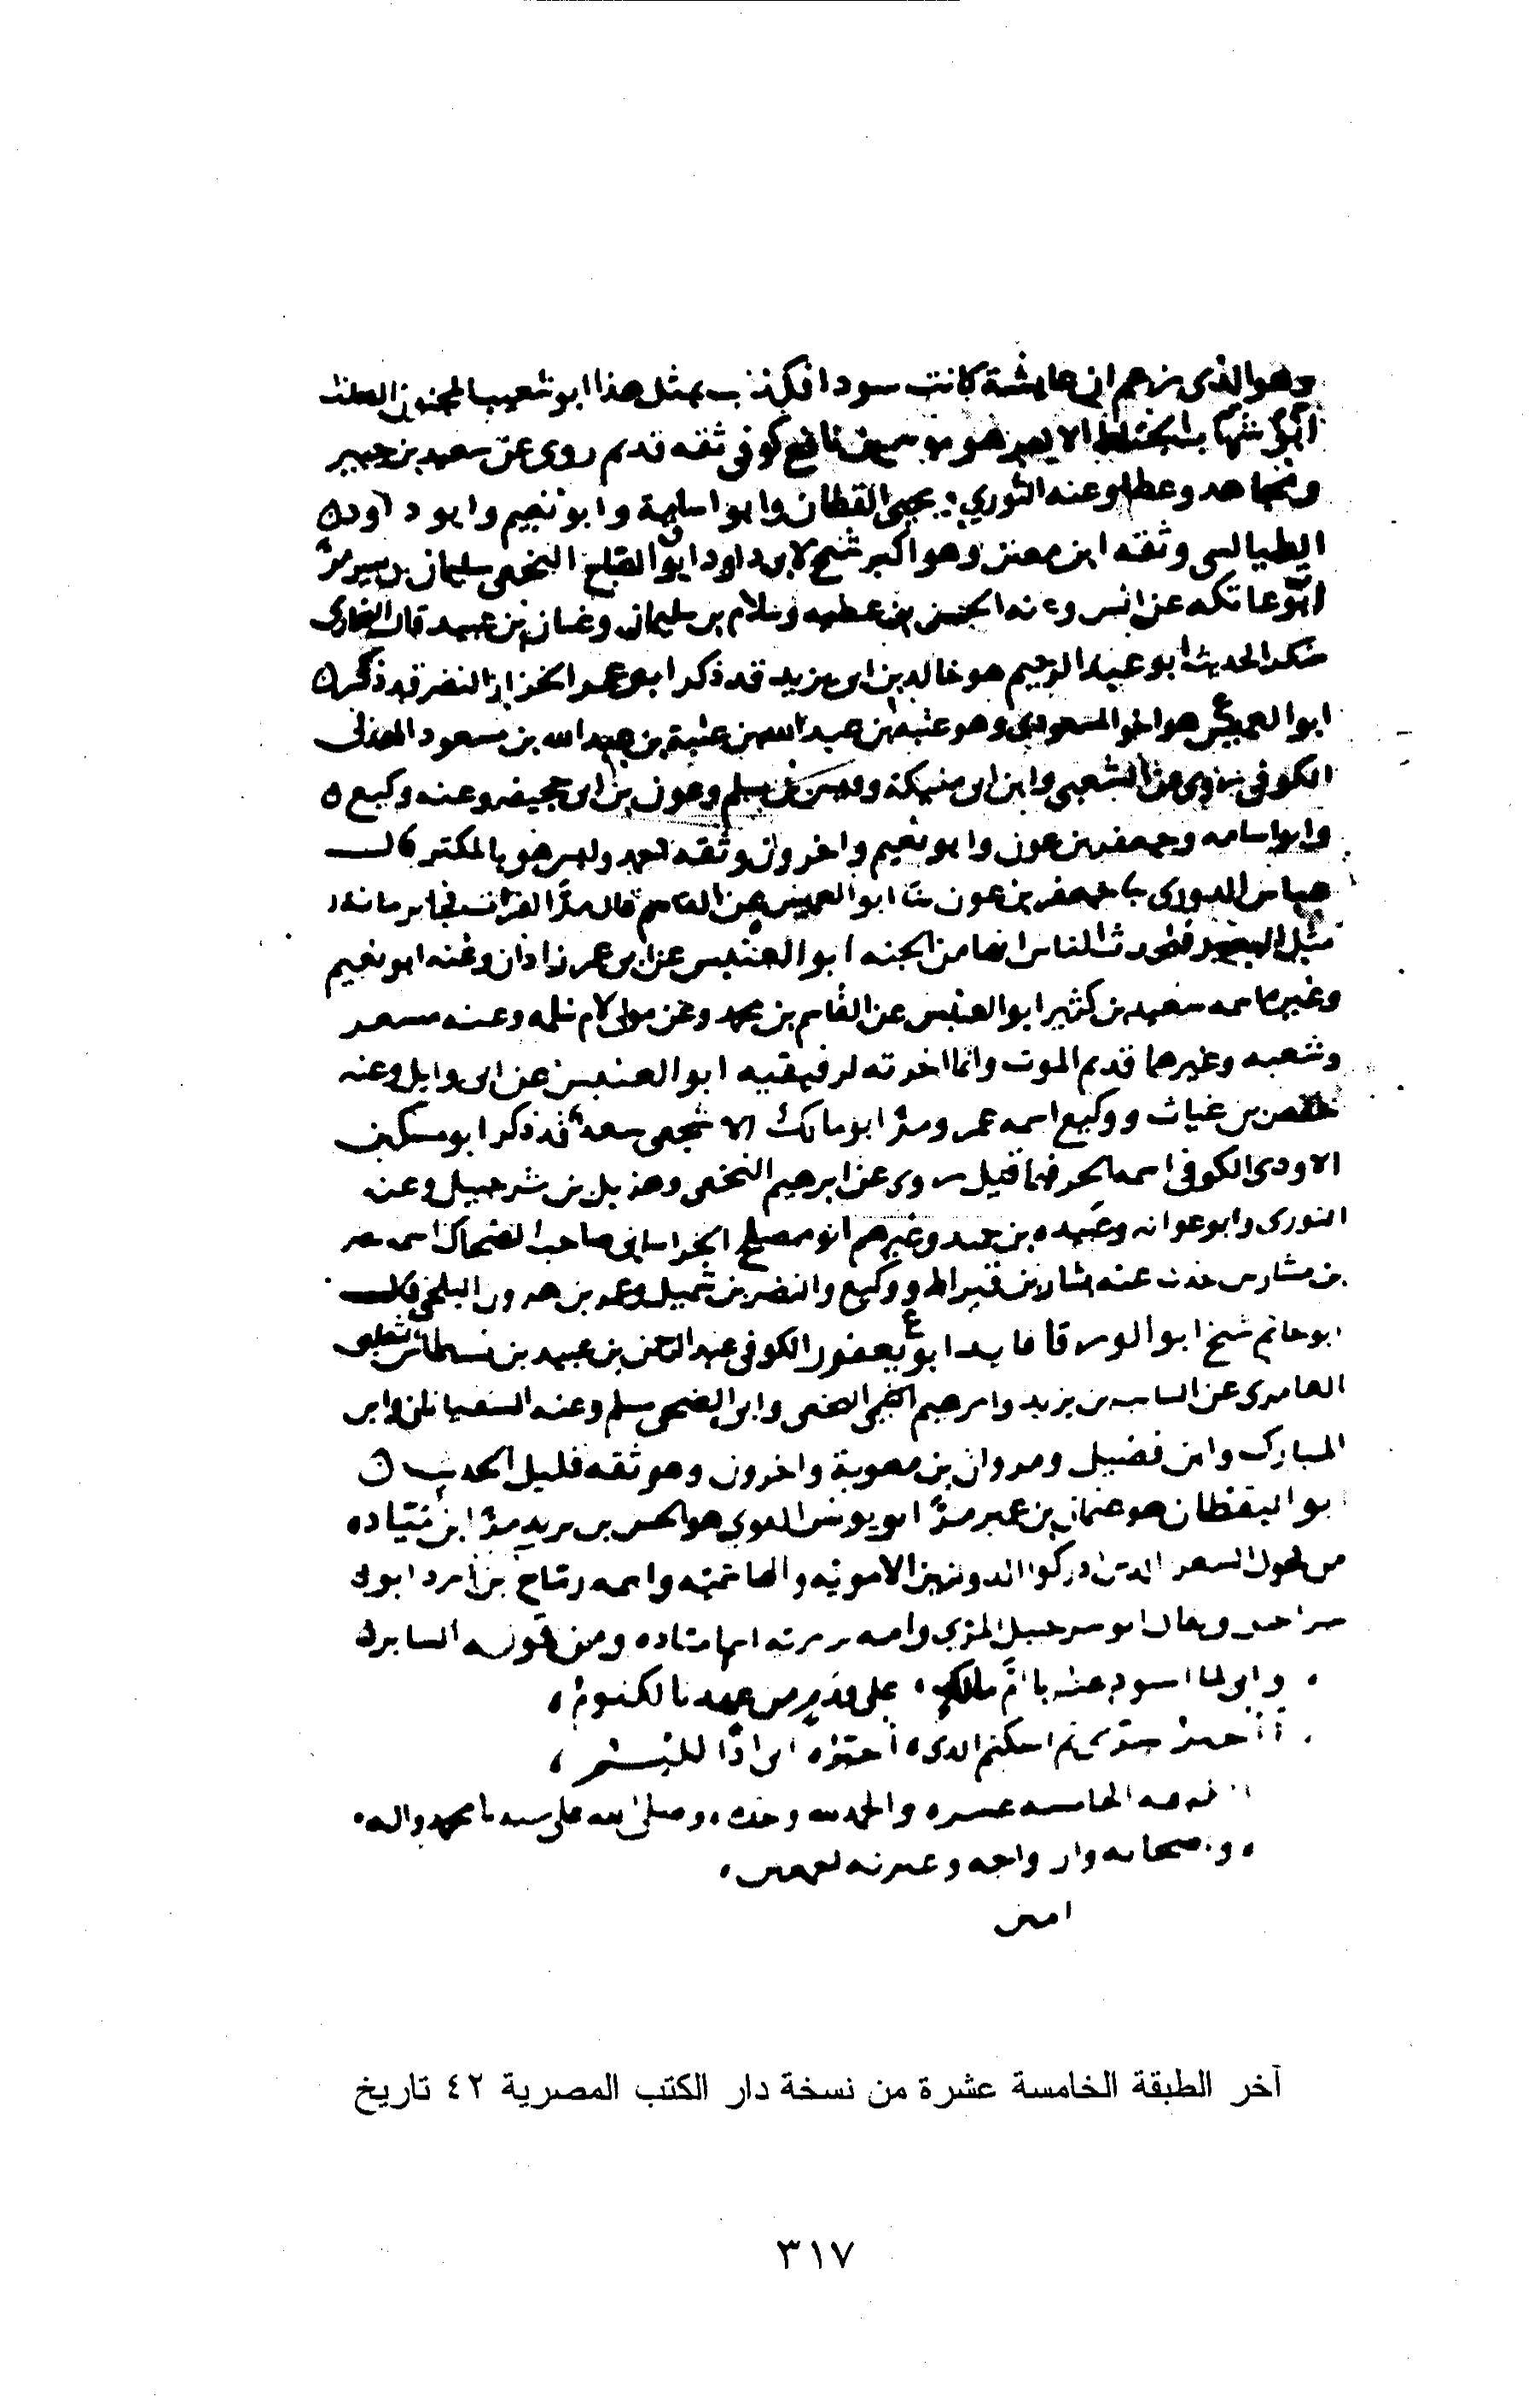 وهو الذى زعم ان عايشة كانت سودا فكذب بمثل هذا ابو شعيب المجنون
ابو شهاب الحناط الاكبر هو موسى بن نافع كوفى ثقه قديم روى عن سعيد بن جبير
ومجاهد وعطا وعنه الثوري ويحيى القطان وابو اسامة وابو نعيم وابو داود
الطيالسى وثقه ابن معين وهو اكبر شيخ لابى داود ابو النخعى سليمان بن
ابو عاتكه عن انس وعنه الحسن بن عطيه وسلام بن سليمان وغسان بن عبيد قال البخارى
منكر الحديث ابو عبد الرحيم هو خالد بن ابى يزيد قد ذكر ابو عمر الخزاز النضر قد ذكر
ابو العميس هو اخو المسعودى وهو عتبة بن عبد الله بن عتبة بن عبد الله بن مسعود الهذلى
الكوفى روى عن الشعبى وابن ابى مليكة وقيس بن مسلم وعون بن ابى جحيفه وعنه وكيع
وابو اسامه وجعفر بن عون وابو نعيم واخرون وثقه احمد وليس هو بالمكثر قال
عباس الدورى ثنا جعفر بن عون ثنا ابو العميس عن القاسم قال مد الفرات فجا برمانة
مثل البعير فتحدث الناس انها من الجنه ابو العنبس عن ابى عمر زاذان وعنه ابو نعيم
وغيره اسمه سعيد بن كثير ابو العنبس عن القاسم بن محمد وعن مولى لام سلمه وعنه مسعر
وشعبه وغيرهما قديم الموت وانما اخرته لرفيقيه ابو العنبس عن ابى وايل وعنه
حفص بن غياث ووكيع اسمه عمرو مر ابو مالك الاشجعى سعد قد ذكر ابو مسكين
الاودى الكوفى اسمه الحر فيما قيل روى عن ابرهيم النخعى وهذيل بن شرحبيل وعنه
الثورى وابو عوانه وعبيده بن حميد وغيرهم ابو مصلح الخراسانى صاحب الضحاك اسمه نصر
بن مشارس حدث عنه بشار بن قيراط ووكيع والنضر بن شميل وعمر بن هرون البلخى قال
ابو حاتم شيخ ابو الورقا فايد ابو يعفور الكوفى عبد الرحمن بن عبيد بن نسطاس
العامرى عن السايب بن يزيد وابرهيم النخعى وابى الضحى مسلم وعنه السفيانان وابن
المبارك وابن فضيل ومروان بن معوية واخرون وهو ثقه قليل الحديث
ابو اليقظان هو عثمان بن عمير مر ابو يونس القوي هو الحسن بن يزيد مر ابن ميّاده
من فحول الشعر الذين ادركوا الدولتين الاموية والهاشمية واسمه رماح بن ابرد ابو
شراحيل ويقال ابو شرحبيل المزي وامه بربريه اسمها مياده ومن قوله الساير
وانى لما استودعته يا ام مالك على قدم من عهدنا لكتوم
اخر الطبقه الخامسه عشره والحمد لله وحده وصلى الله على سيدنا محمد واله
وصحابه وازواجه وعترته اجمعين
امين
آخر الطبقة الخامسة عشرة من نسخة دار الكتب المصرية ٤٢ تاريخ
٣١٧